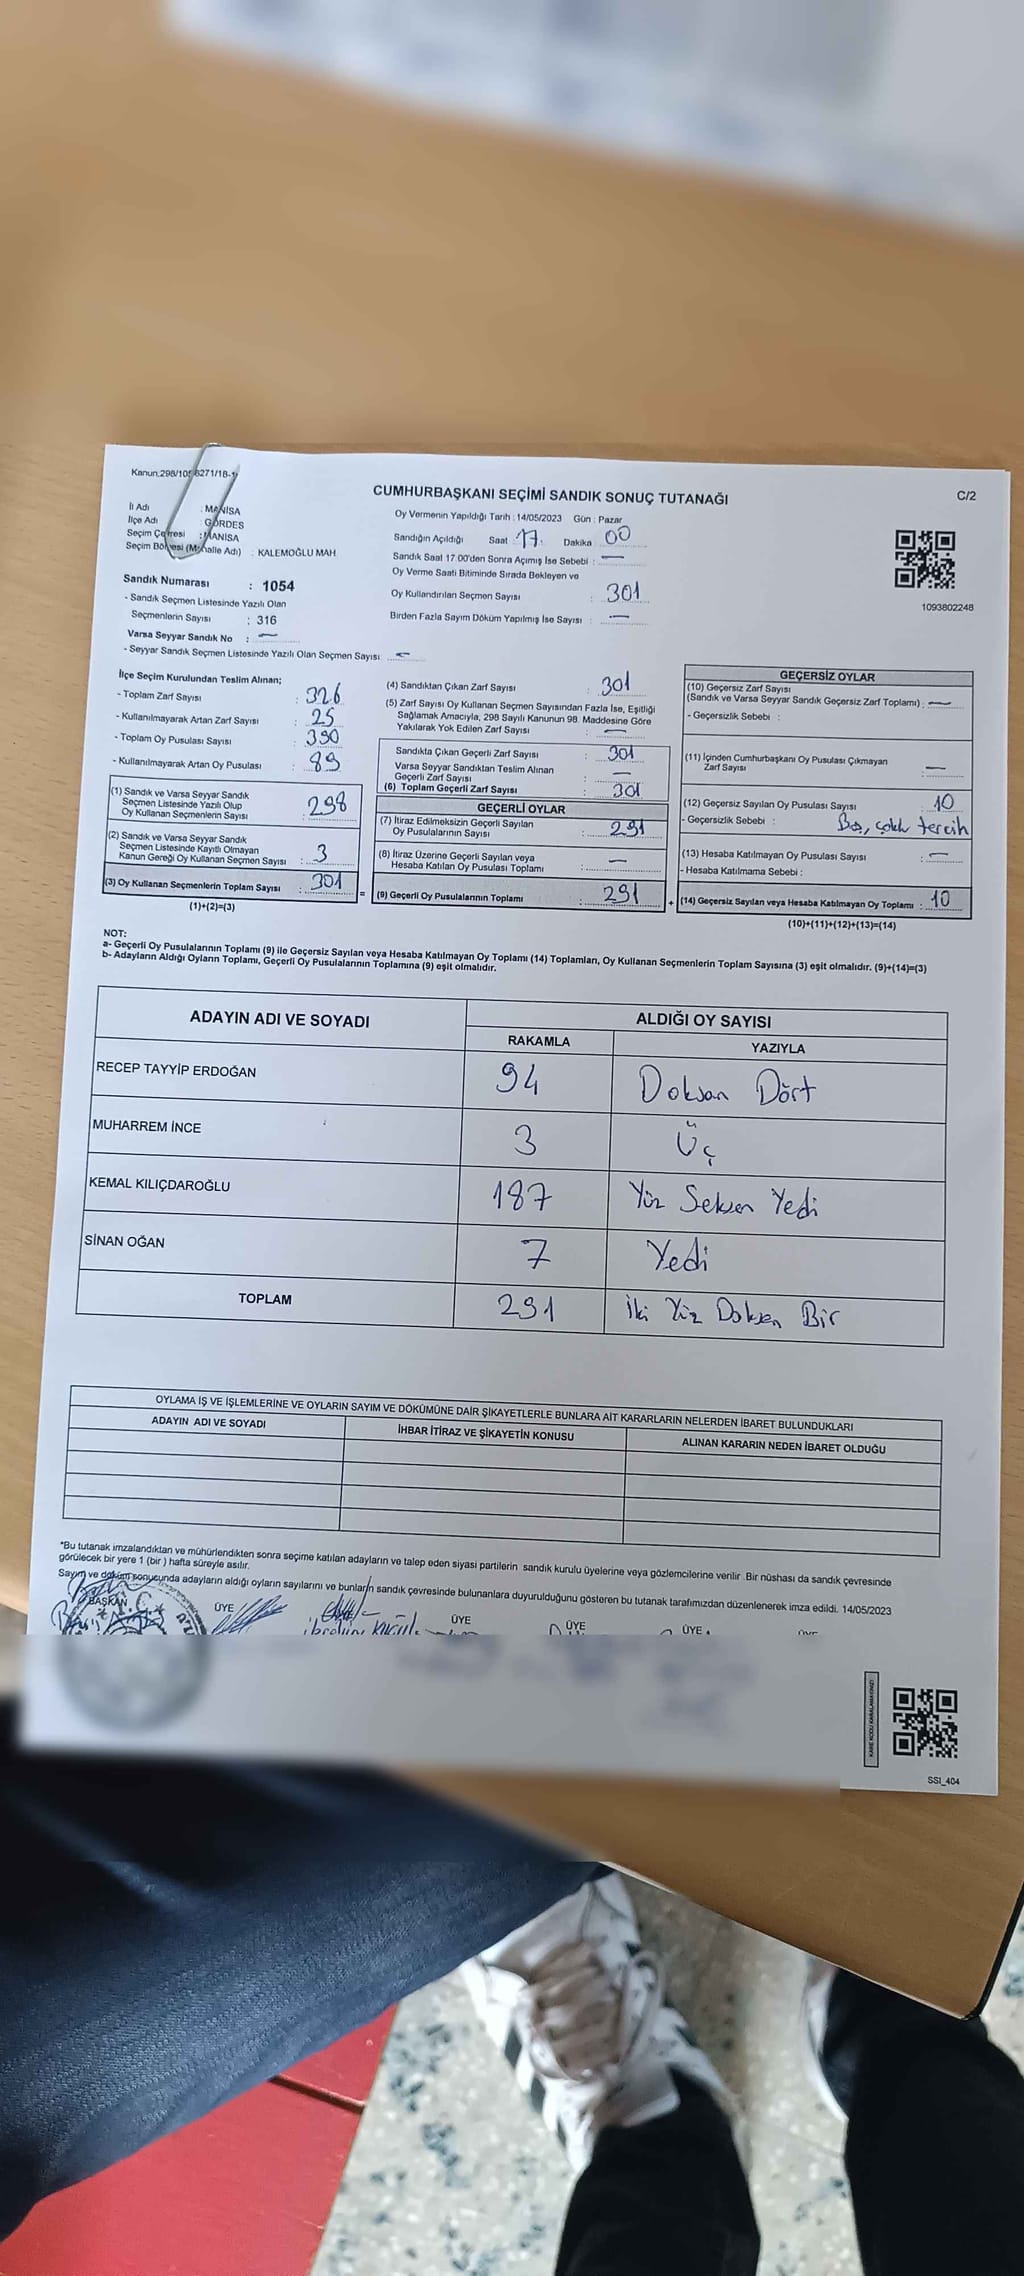 Kanun:298/105 6271/18-1
CUMHURBAŞKANI SEÇİMİ SANDIK SONUÇ TUTANAĞI
C/2
İl Adı : MANİSA
İlçe Adı : GÖRDES
Seçim Çevresi : MANİSA
Seçim Bölgesi (Mahalle Adı) : KALEMOĞLU MAH
Sandık Numarası : 1054
- Sandık Seçmen Listesinde Yazılı Olan
Seçmenlerin Sayısı : 316
Varsa Seyyar Sandık No : —
- Seyyar Sandık Seçmen Listesinde Yazılı Olan Seçmen Sayısı : —
Oy Vermenin Yapıldığı Tarih : 14/05/2023 Gün : Pazar
Sandığın Açıldığı Saat 17 Dakika 00
Sandık Saat 17:00'den Sonra Açımış İse Sebebi : —
Oy Verme Saati Bitiminde Sırada Bekleyen ve
Oy Kullandırılan Seçmen Sayısı : 301
Birden Fazla Sayım Döküm Yapılmış İse Sayısı : —
1093802248
İlçe Seçim Kurulundan Teslim Alınan;
- Toplam Zarf Sayısı : 326
- Kullanılmayarak Artan Zarf Sayısı : 25
- Toplam Oy Pusulası Sayısı : 390
- Kullanılmayarak Artan Oy Pusulası : 89
(1) Sandık ve Varsa Seyyar Sandık
Seçmen Listesinde Yazılı Olup
Oy Kullanan Seçmenlerin Sayısı : 298
(2) Sandık ve Varsa Seyyar Sandık
Seçmen Listesinde Kayıtlı Olmayan
Kanun Gereği Oy Kullanan Seçmen Sayısı : 3
(3) Oy Kullanan Seçmenlerin Toplam Sayısı : 301
(1)+(2)=(3)
(4) Sandıktan Çıkan Zarf Sayısı : 301
(5) Zarf Sayısı Oy Kullanan Seçmen Sayısından Fazla İse, Eşitliği
Sağlamak Amacıyla, 298 Sayılı Kanunun 98. Maddesine Göre
Yakılarak Yok Edilen Zarf Sayısı : —
Sandıkta Çıkan Geçerli Zarf Sayısı : 301
Varsa Seyyar Sandıktan Teslim Alınan
Geçerli Zarf Sayısı : —
(6) Toplam Geçerli Zarf Sayısı : 301
GEÇERLİ OYLAR
(7) İtiraz Edilmeksizin Geçerli Sayılan
Oy Pusulalarının Sayısı : 291
(8) İtiraz Üzerine Geçerli Sayılan veya
Hesaba Katılan Oy Pusulası Toplamı : —
= (9) Geçerli Oy Pusulalarının Toplamı : 291 +
GEÇERSİZ OYLAR
(10) Geçersiz Zarf Sayısı
(Sandık ve Varsa Seyyar Sandık Geçersiz Zarf Toplamı) : —
- Geçersizlik Sebebi :
(11) İçinden Cumhurbaşkanı Oy Pusulası Çıkmayan
Zarf Sayısı : —
(12) Geçersiz Sayılan Oy Pusulası Sayısı : 10
- Geçersizlik Sebebi : Boş, çoklu tercih
(13) Hesaba Katılmayan Oy Pusulası Sayısı : —
- Hesaba Katılmama Sebebi :
(14) Geçersiz Sayılan veya Hesaba Katılmayan Oy Toplamı : 10
(10)+(11)+(12)+(13)=(14)
NOT:
a- Geçerli Oy Pusulalarının Toplamı (9) ile Geçersiz Sayılan veya Hesaba Katılmayan Oy Toplamı (14) Toplamları, Oy Kullanan Seçmenlerin Toplam Sayısına (3) eşit olmalıdır. (9)+(14)=(3)
b- Adayların Aldığı Oyların Toplamı, Geçerli Oy Pusulalarının Toplamına (9) eşit olmalıdır.
ADAYIN ADI VE SOYADI
ALDIĞI OY SAYISI
RAKAMLA YAZIYLA
RECEP TAYYİP ERDOĞAN 94 Doksan Dört
MUHARREM İNCE 3 Üç
KEMAL KILIÇDAROĞLU 187 Yüz Seksen Yedi
SİNAN OĞAN 7 Yedi
TOPLAM 291 İki Yüz Doksan Bir
OYLAMA İŞ VE İŞLEMLERİNE VE OYLARIN SAYIM VE DÖKÜMÜNE DAİR ŞİKAYETLERLE BUNLARA AİT KARARLARIN NELERDEN İBARET BULUNDUKLARI
ADAYIN ADI VE SOYADI İHBAR İTİRAZ VE ŞİKAYETİN KONUSU ALINAN KARARIN NEDEN İBARET OLDUĞU
*Bu tutanak imzalandıktan ve mühürlendikten sonra seçime katılan adayların ve talep eden siyasi partilerin sandık kurulu üyelerine veya gözlemcilerine verilir .Bir nüshası da sandık çevresinde
görülecek bir yere 1 (bir ) hafta süreyle asılır.
Sayım ve döküm sonucunda adayların aldığı oyların sayılarını ve bunların sandık çevresinde bulunanlara duyurulduğunu gösteren bu tutanak tarafımızdan düzenlenerek imza edildi. 14/05/2023
BAŞKAN ÜYE ÜYE ÜYE ÜYE
KARE KODU KARALAMAYINIZ!
SSI_404